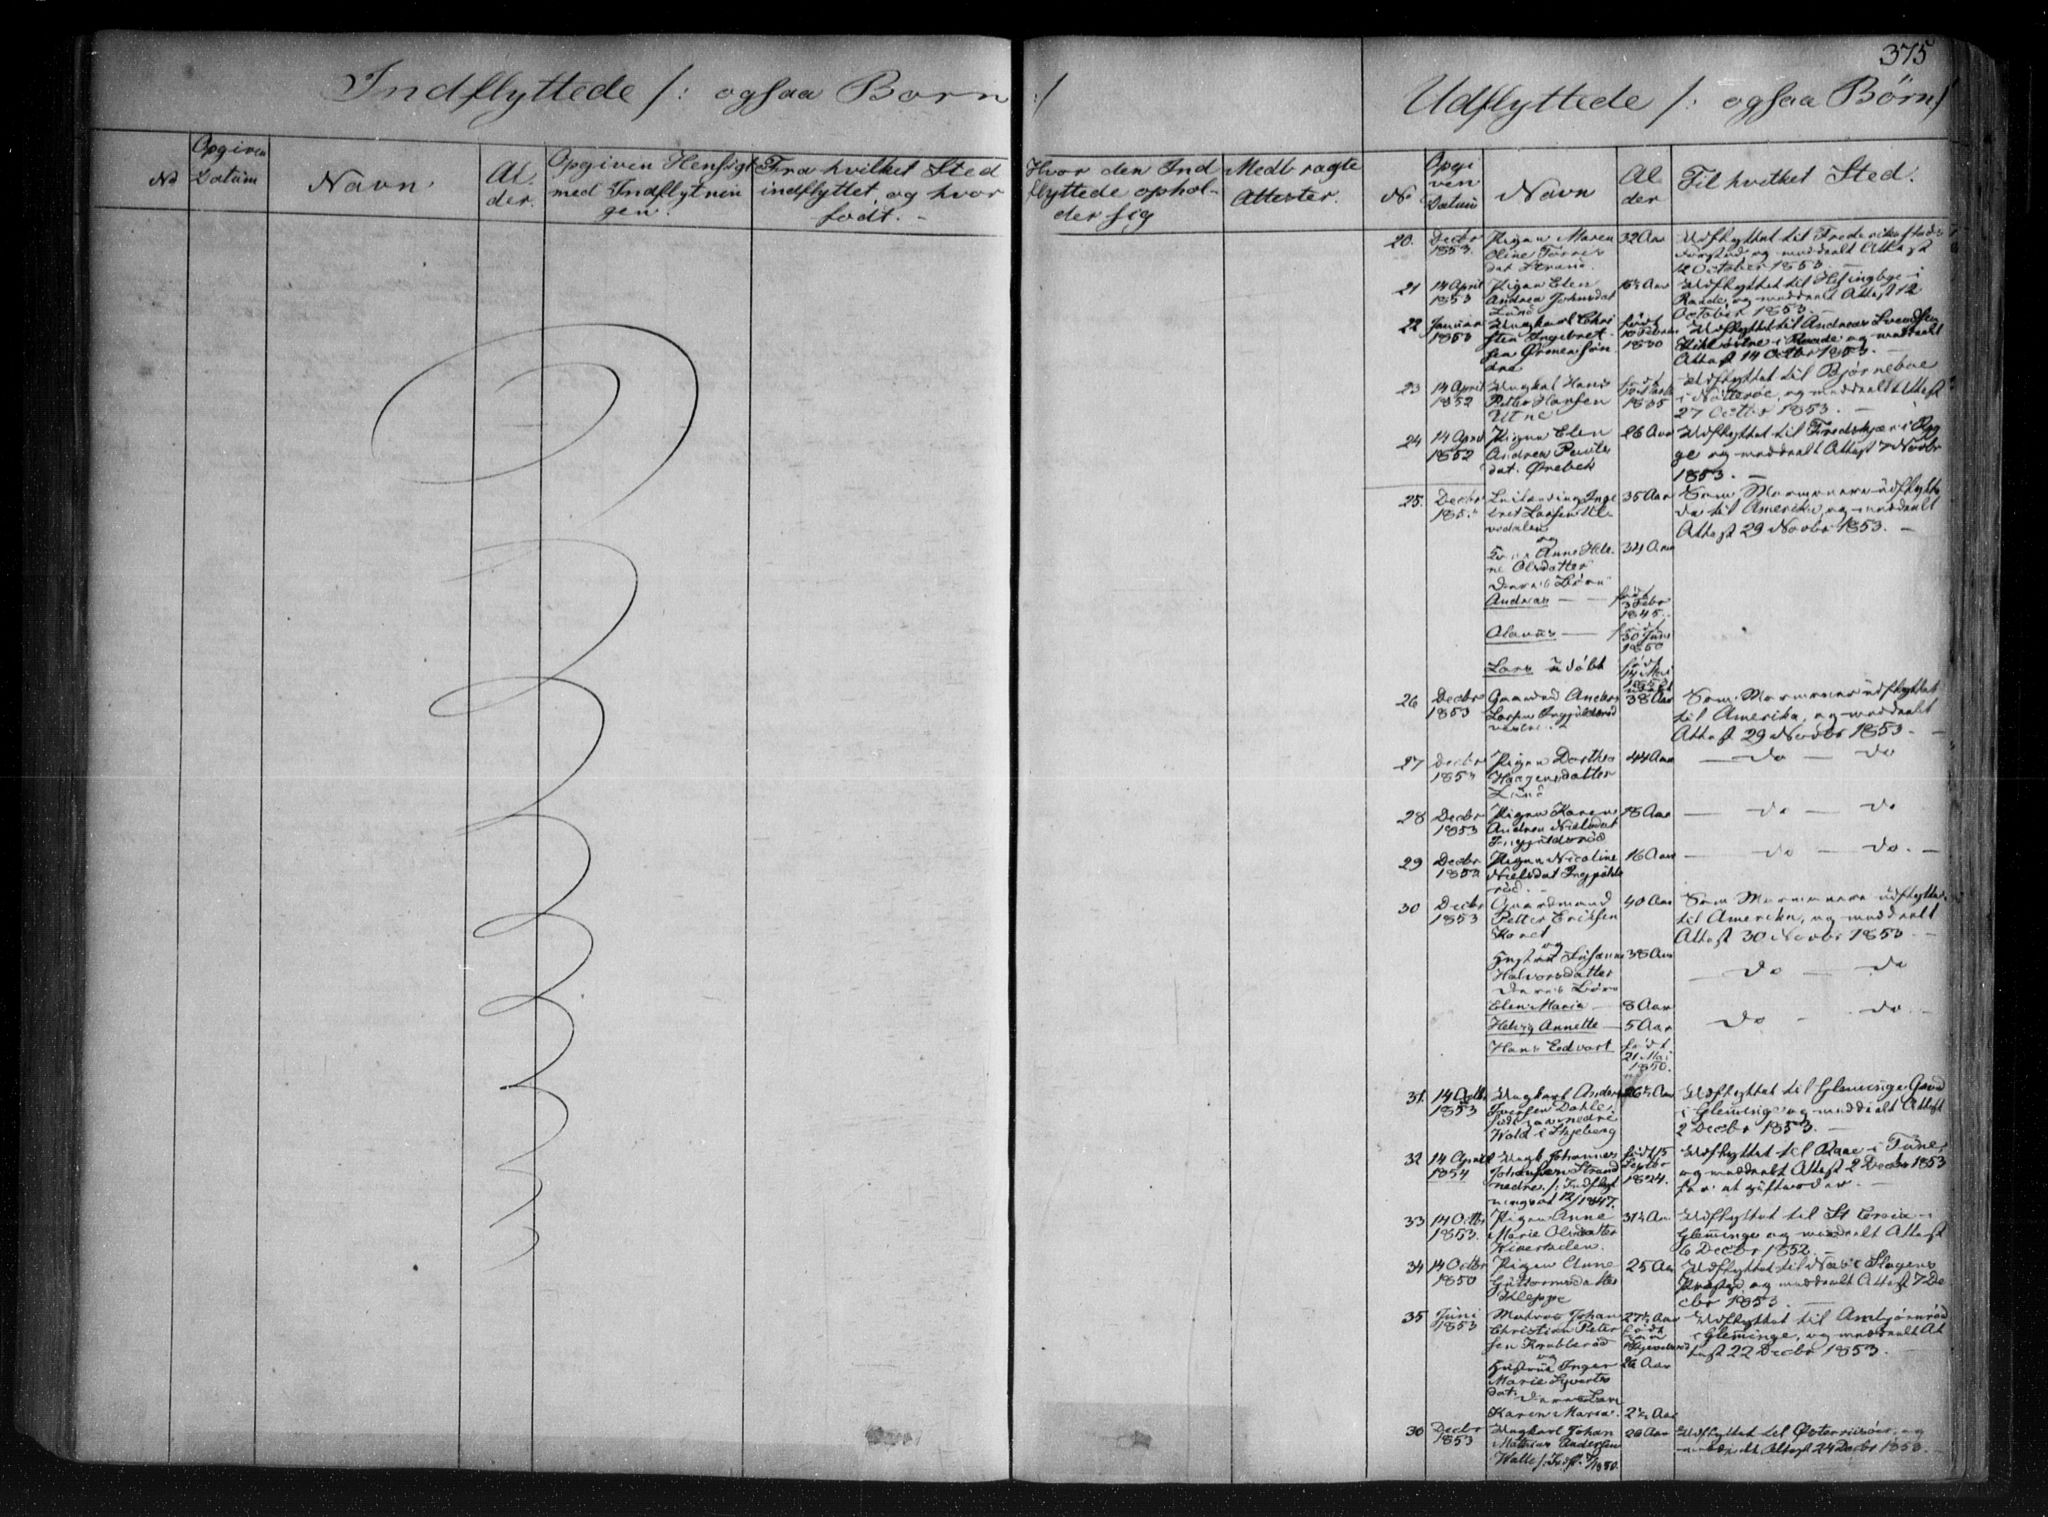 375
Indflyttede /: ogsaa Børn :/
Udflyttede /: ogsaa Børn /
No
Opgiven Datum
Navn
Alder
Opgiven Hensigt med Indflytningen.
Fra hvilket Sted indflyttet, og hvor født. -
Hvor den Indflyttede opholder sig
Medbragte Attester.
No
Opgiven Datum
Navn
Alder
Til hvilket Sted.
20. Decbr 1853. Pigen Maren Oline Torresdat Strand. 32 Aar Udflyttet til Frederikstads og meddeelt Attest 12 October 1853. -
21 14 April 1853 Pigen Elen Andrea Johnsdat Lund Udflyttet til Helingbye i Raade, og meddeelt Attest 12 October 1853. -
22 Januar 1853 Ungkarl Christen Ingebretsen Ørmen søndre født 1830 Udflyttet til Andreas Svendsen i Raade og meddeelt Attest 14 Octbr 1853. -
23 14 April 1852 Ungkal Hans Petter Hansen Utne født 1835 Udflyttet til Bjørneboe i Nøtterøe, og meddeelt Attest 27 Octbr 1853. -
24 14 April 1852 Pigen Elen Andrea Poulsdat. Ørebek 26 Aar Udflyttet til Fredskjær i Rygge og meddeelt Attest 7 Novbr 1853. -
25. Decbr Ingebret Larsen 35 Aar Som Mormonere udflyttede til Amerika, og meddeelt Attest 29 Novbr 1853. -
og
Anne Helene Olsdatter 34 Aar
deres Børn
Andreas - - født 3 Febr 1845.
Olavus - født 30 Juni 1850
Lars udøbt født 14 Mai
26 Decbr 1853 Gaardmd Anders Larsen Ingjuldsrød vestre. 38 Aar Som Mormoner udflyttet til Amerika, og meddeelt Attest 29 Novbr 1853. -
27 Decbr 1853 Pigen Dorthea Haagensdatter Lund 44 Aar - do - do
28 Decbr 1853 Pigen Karen Andrea Nielsdat Ingjuldsrød 18 Aar - do - do
29 Decbr Pigen Nicoline Nielsdat Ingjulds rød. 16 Aar - do - do. -
30 Decbr 1853 Gaardmand Petter Eriksen Karet 40 Aar Som Mormonere udflyttede til Amerika, og meddeelt Attest 30 Novbr 1853. -
og
Hustrue Susanne Halvorsdatter 38 Aar - do - do
deres Børn
Elen Maria - 8 Aar
Helvig Annette - 5 Aar do - do. -
Hans Edvart født 21 Mai 1850.
31. 14 Octbr 1853 Ungkarl Anders Iversen Dahle født paa nedre Wold i Skjeberg 26½ Aar Udflyttet til Gleminge Gaard i Gleminge og meddeelt Attest 2 Decbr 1853. -
32 14 April 1854 Ungk Johannes Johansen Strand nedre. /: Indflytningsat 12/1847. født 15 Septbr 1824. Udflyttet til Raae i Tune, og meddeelt Attest 2 Decbr 1853 for at giftes der. -
33 14 Octbr 1853. Pigen Anne Marie Olsdatter 31½ Aar Udflyttet til St Croix i Gleminge og meddeelt Attest 6 Decbr 1852. -
34 14 Octbr 1850 Pigen Anne Guttormsdatter Kleppe 25 Aar Udflyttet til Næs i Slagens Præstgd og meddeelt Attest 7 Decbr 1853. -
35 Juni 1853 Matros Johan Christian Petersen Krabberød 27½ Aar Udflyttet til Ambjørnrød i Gleminge, og meddeelt Attest 22 Decbr 1853. -
og
Hustrue Inger Marie Syvertsdat. 26 Aar
deres Barn
Karen Maria. 2½ Aar
36 Decbr 1853 Ungkarl Johan Mathias Andersen Walle /: Indfl. 26 Aar Udflyttet til Østerrisøer, og meddeelt Attest 24 Decbr 1853. -